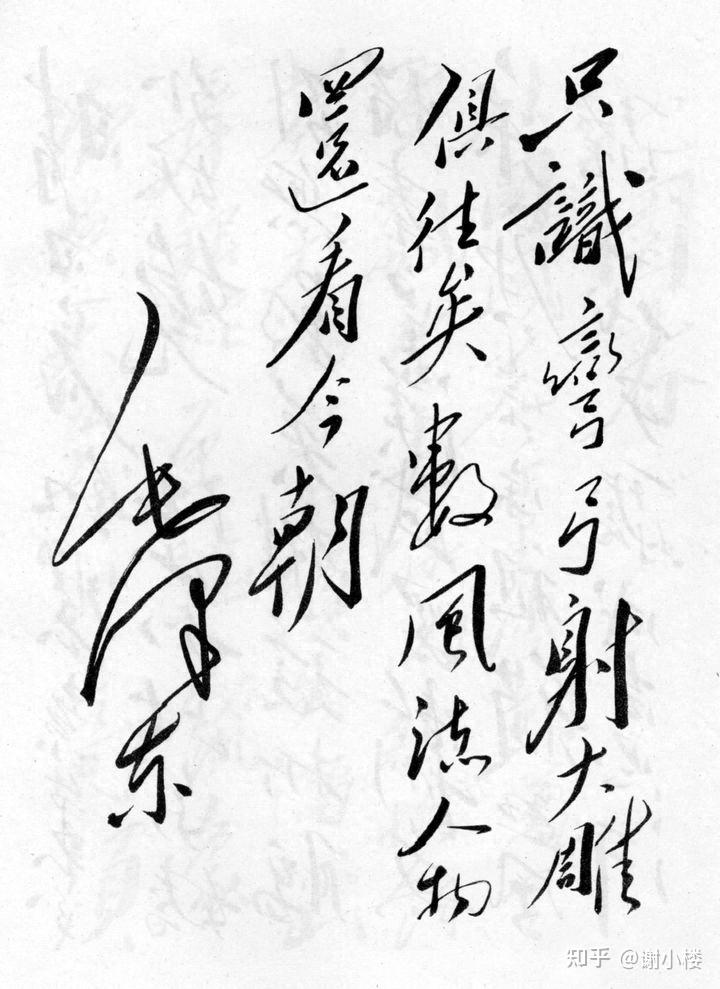 只識彎弓射大雕
俱往矣數風流人物
還看今朝
毛澤东
知乎 @谢小楼